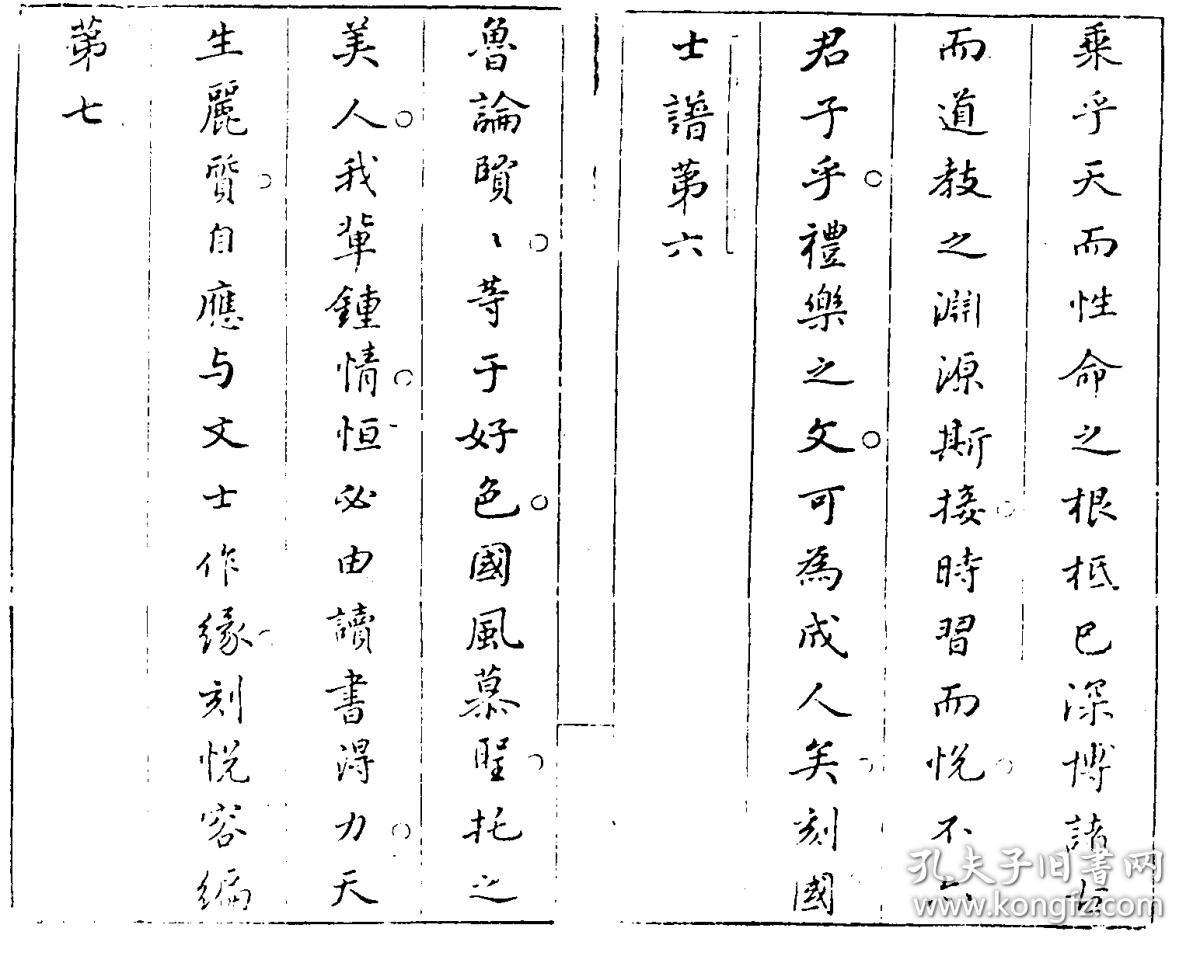 乘乎天而性命之根柢已深博諸古
而道教之淵源斯接時習而悅不亦
君子乎禮樂之文可為成人矣刻國
士譜第六
魯論賢〻等于好色國風慕聖托之
美人我輩鍾情恒必由讀書得力天
生麗質自應与文士作緣刻悅容編
第七
孔夫子旧书网
www.kongfz.com